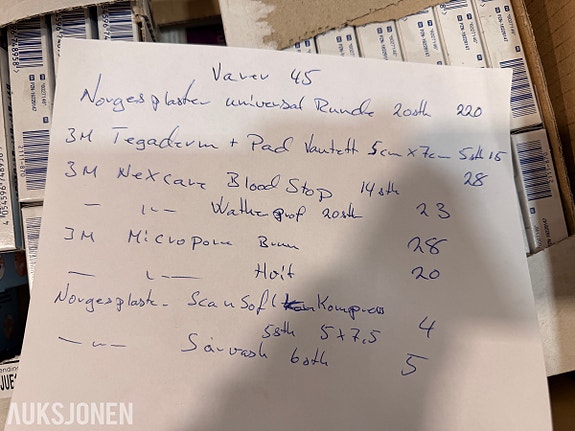 Varer 45
Norgesplaster universal Runde 20stk 220
3M Tegaderm + Pad Vantett 5cm x 7cm 5stk 15
3M Nexcare Blood Stop 14stk 28
— 11 — Watherprof 20stk 23
3M Micropore Brun 28
— 11 — Hvit 20
Norgesplaster ScanSoft Kompress
5stk 5x7,5 4
— 11 — Sårvask 6stk 5
AUKSJONEN